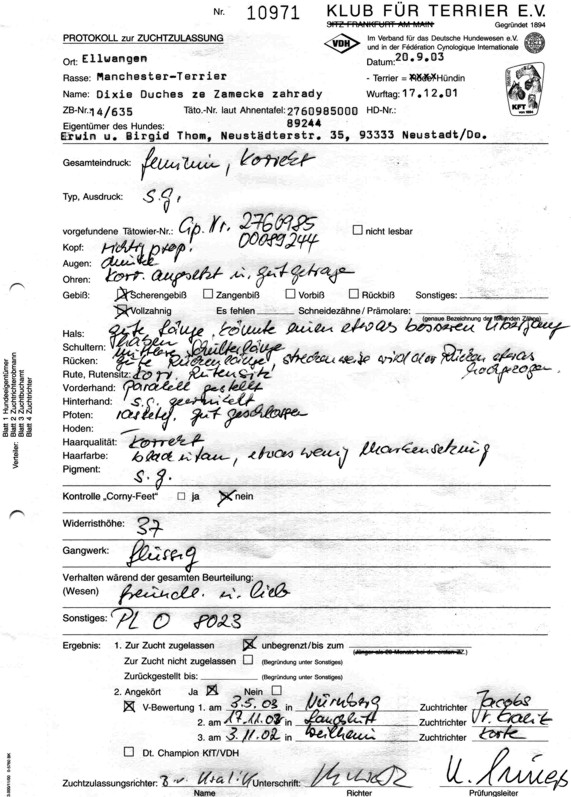 Nr. 10971 KLUB FÜR TERRIER E.V.
SITZ FRANKFURT AM MAIN Gegründet 1894
PROTOKOLL zur ZUCHTZULASSUNG
VDH Im Verband für das Deutsche Hundewesen e.V.
und in der Fédération Cynologique Internationale
Ort: Ellwangen Datum: 20.9.03
Rasse: Manchester-Terrier - Terrier = XXXX Hündin
Name: Dixie Duches ze Zamecke zahrady Wurftag: 17.12.01
KFT
ZB-Nr. 14/635 Täto.-Nr. laut Ahnentafel: 2760985000 HD-Nr.:
89244
Eigentümer des Hundes:
Erwin u. Birgid Thom, Neustädterstr. 35, 93333 Neustadt/Do.
Gesamteindruck: feminin, korrekt
Typ, Ausdruck: s.g.
vorgefundene Tätowier-Nr.: Cip. Nr. 2760985 nicht lesbar
00089244
Kopf: richtig prop.
Augen: dunkel
Ohren: korr. angesetzt u. gut getragen
Gebiß: Scherengebiß Zangenbiß Vorbiß Rückbiß Sonstiges:
Vollzahnig Es fehlen Schneidezähne / Prämolare:
(genaue Bezeichnung der fehlenden Zähne)
Hals: gute Länge, könnte einen etwas besseren Übergang
haben
Schultern: mittlere Schulterlänge
Rücken: gute Rückenlänge streckenweise wird der Rücken etwas
hochgezogen.
Rute, Rutensitz: korr. Rutensitz
Vorderhand: parallel gestellt
Hinterhand: s.g. gewinkelt
Pfoten: gut geschlossen
Hoden:
Haarqualität: korrekt
Haarfarbe: black u. tan, etwas wenig Markensetzung
Pigment: s.g.
Kontrolle „Corny-Feet" ja nein
Widerristhöhe: 37
Gangwerk: flüssig
Verhalten wärend der gesamten Beurteilung:
(Wesen) freundl. u. lieb
Sonstiges: PL 0 8023
Ergebnis: 1. Zur Zucht zugelassen unbegrenzt/bis zum
Zur Zucht nicht zugelassen (Begründung unter Sonstiges)
Zurückgestellt bis: (Begründung unter Sonstiges)
2. Angekört Ja Nein
V-Bewertung 1. am 3.5.03 in Nürnberg Zuchtrichter Jacobs
2. am 17.11.02 in Landshut Zuchtrichter
3. am 3.11.02 in Weilheim Zuchtrichter
Dt. Champion KfT/VDH
Zuchtzulassungsrichter: Unterschrift:
Name Richter Prüfungsleiter
Verteiler: Blatt 1 Hundeeigentümer
Blatt 2 Zuchtrichterobmann
Blatt 3 Zuchtbuchamt
Blatt 4 Zuchtrichter